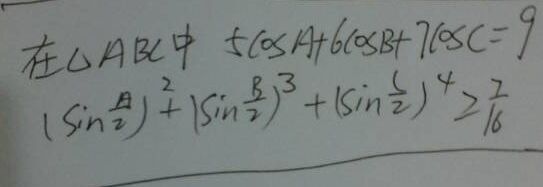 在△ABC中 5cosA+6cosB+7cosC=9
(sin A/2)^2+(sin B/2)^3+(sin C/2)^4≥7/16